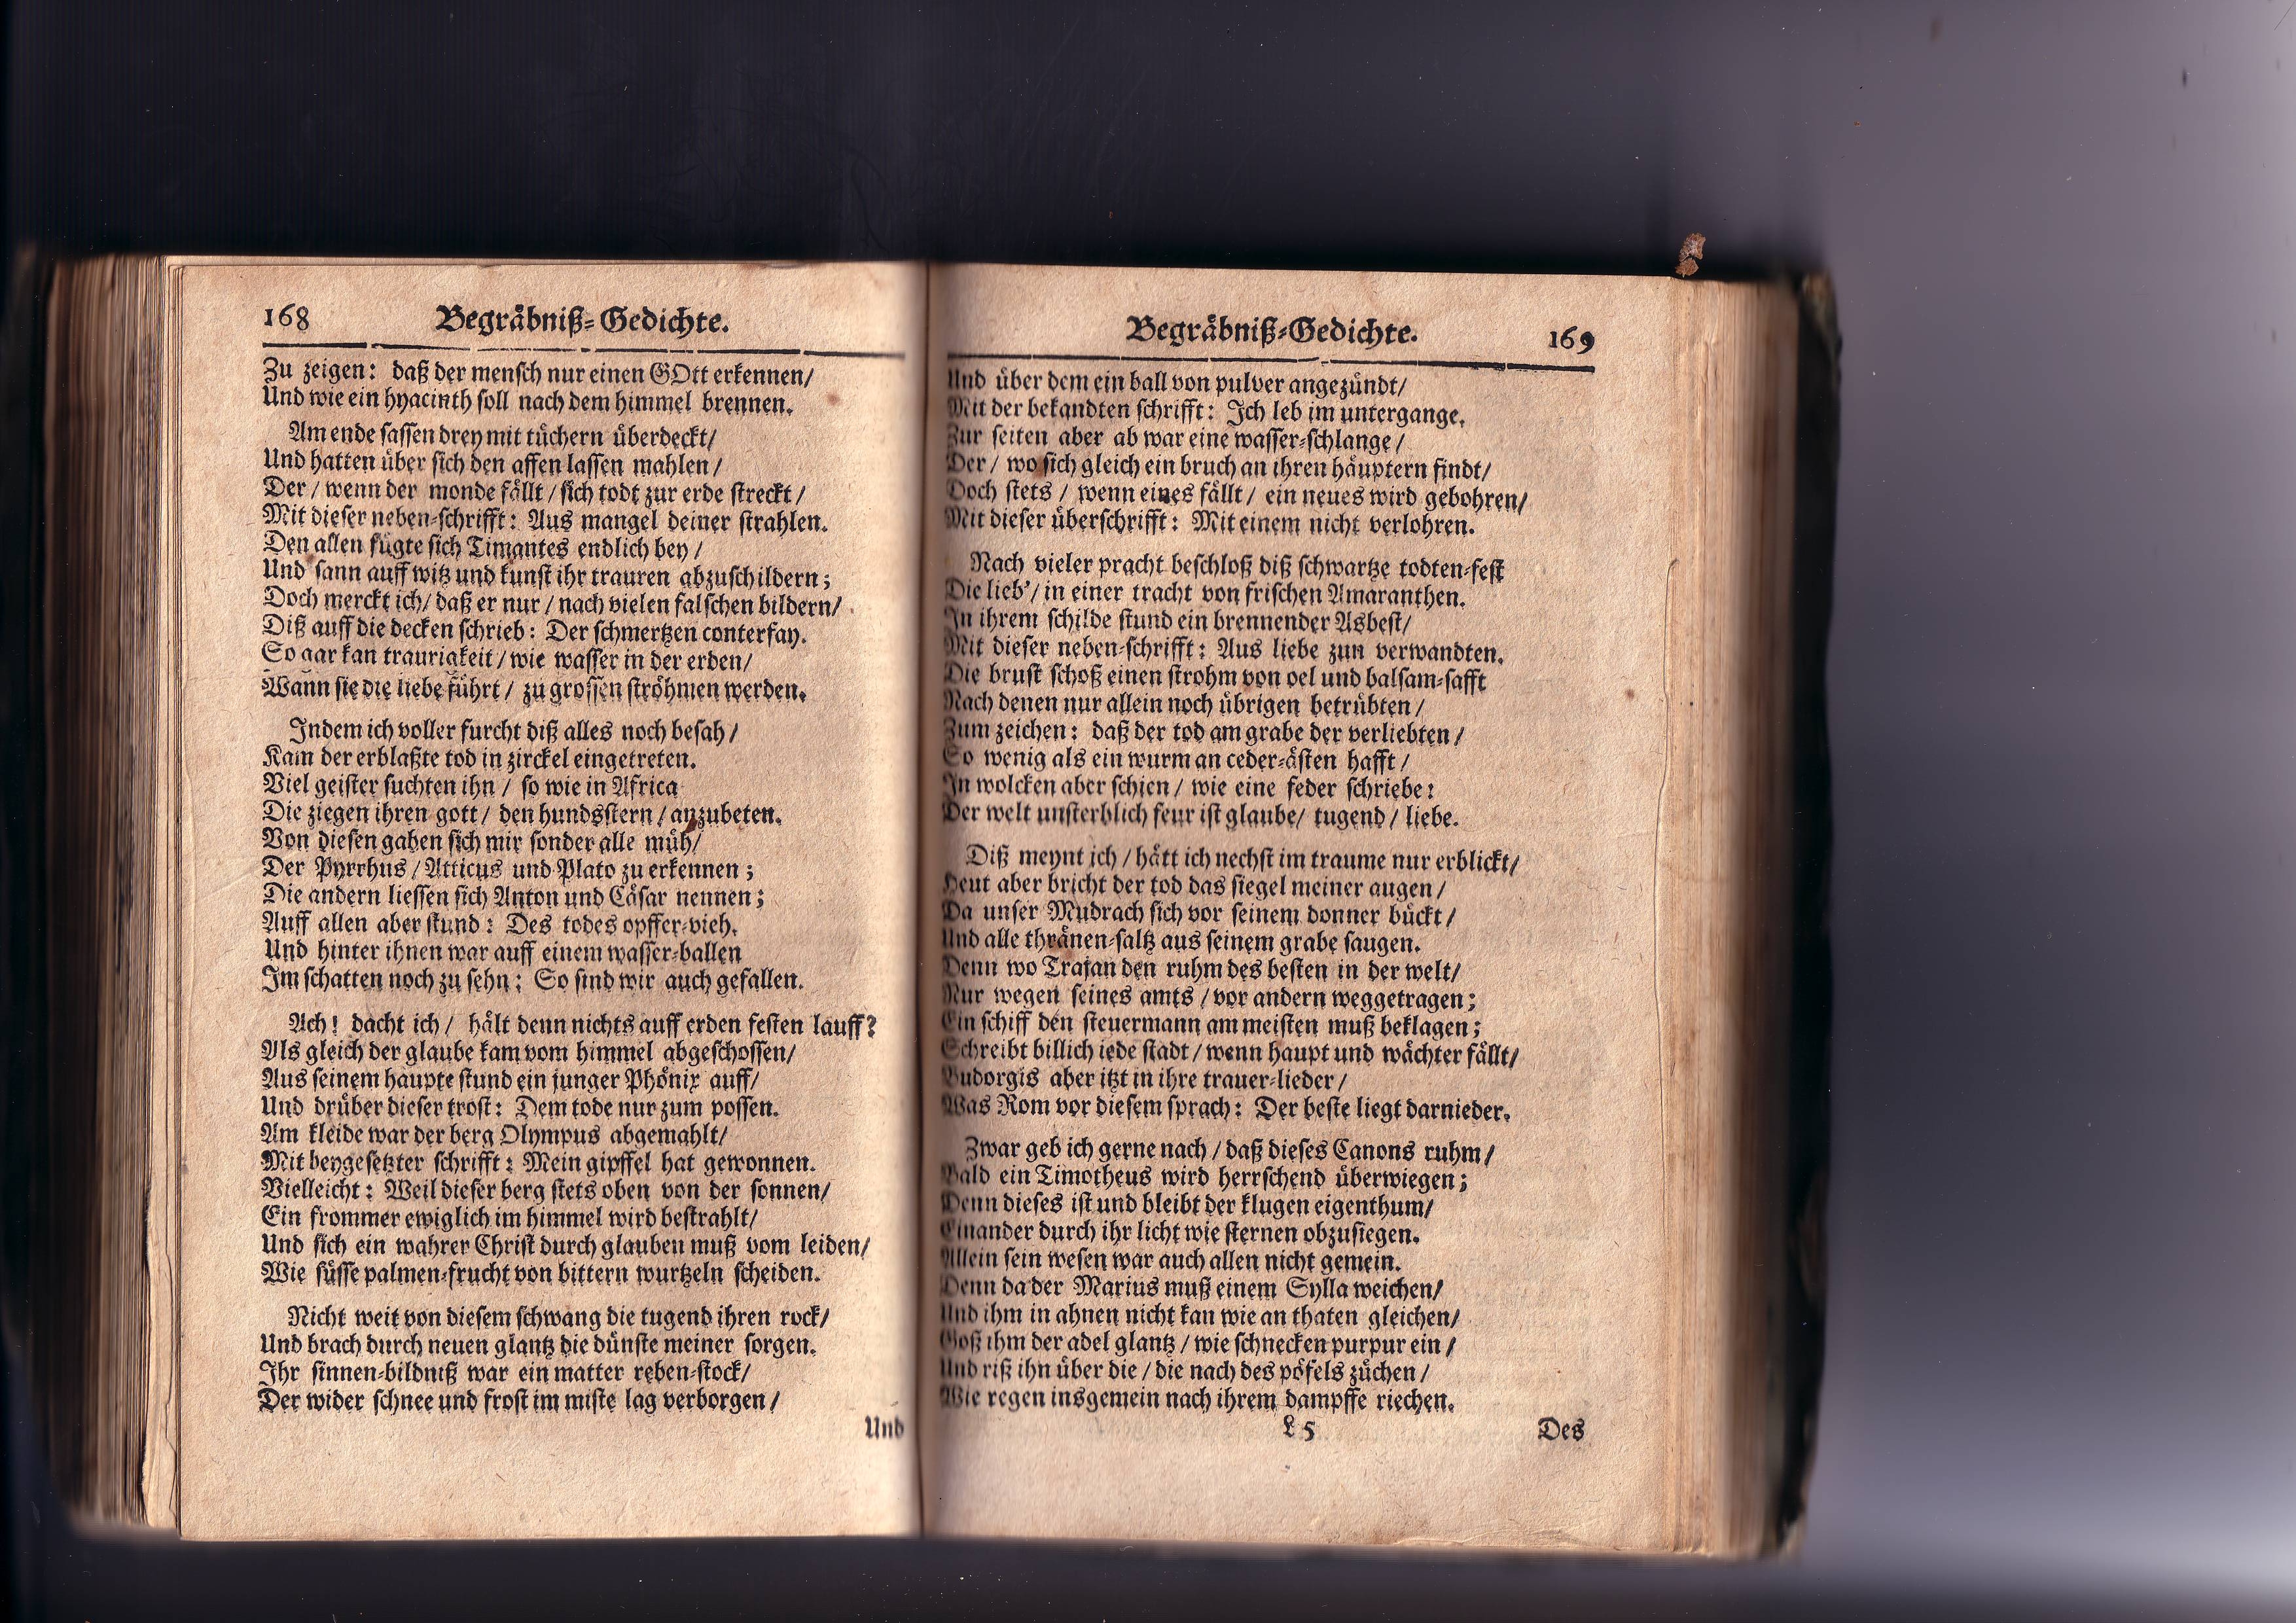 168 Begräbniß-Gedichte.
Zu zeigen: daß der mensch nur einen GOtt erkennen/
Und wie ein hyacinth soll nach dem himmel brennen.
Am ende sassen drey mit tüchern überdeckt/
Und hatten über sich den affen lassen mahlen/
Der/ wenn der monde fällt/ sich todt zur erde streckt/
Mit dieser neben-schrifft: Aus mangel deiner strahlen.
Den allen fügte sich Timantes endlich bey/
Und sann auff witz und kunst ihr trauren abzuschildern;
Doch merckt ich/ daß er nur/ nach vielen falschen bildern/
Diß auff die decken schrieb: Der schmertzen conterfay.
So gar kan traurigkeit/ wie wasser in der erden/
Wann sie die liebe führt/ zu grossen ströhmen werden.
Indem ich voller furcht diß alles noch besah/
Kam der erblaßte tod in zirckel eingetreten.
Viel geister suchten ihn/ so wie in Africa
Die ziegen ihren gott/ den hundsstern/ anzubeten.
Von diesen gaben sich mir sonder alle müh/
Der Pyrrhus/ Atticus und Plato zu erkennen;
Die andern liessen sich Anton und Cäsar nennen;
Auff allen aber stund: Des todes opffer-vieh.
Und hinter ihnen war auff einem wasser-ballen
Im schatten noch zu sehn: So sind wir auch gefallen.
Ach! dacht ich/ hält denn nichts auff erden festen lauff?
Als gleich der glaube kam vom himmel abgeschossen/
Aus seinem haupte stund ein junger Phönix auff/
Und drüber dieser trost: Dem tode nur zum possen.
Am kleide war der berg Olympus abgemahlt/
Mit beygesetzter schrifft: Mein gipffel hat gewonnen.
Vielleicht: Weil dieser berg stets oben von der sonnen/
Ein frommer ewiglich im himmel wird bestrahlt/
Und sich ein wahrer Christ durch glauben muß vom leiden/
Wie süsse palmen-frucht von bittern wurtzeln scheiden.
Nicht weit von diesem schwang die tugend ihren rock/
Und brach durch neuen glantz die dünste meiner sorgen.
Ihr sinnen-bildniß war ein matter reben-stock/
Der wider schnee und frost im miste lag verborgen/
Und
Begräbniß-Gedichte. 169
Und über dem ein ball von pulver angezündt/
Mit der bekandten schrifft: Ich leb im untergange.
Zur seiten aber ab war eine wasser-schlange/
Der/ wo sich gleich ein bruch an ihren häuptern findt/
Doch stets/ wenn eines fällt/ ein neues wird gebohren/
Mit dieser überschrifft: Mit einem nicht verlohren.
Nach vieler pracht beschloß diß schwartze todten-fest
Die lieb'/ in einer tracht von frischen Amaranthen.
In ihrem schilde stund ein brennender Asbest/
Mit dieser neben-schrifft: Aus liebe zun verwandten.
Die brust schoß einen strohm von oel und balsam-safft
Nach denen nur allein noch übrigen betrübten/
Zum zeichen: daß der tod am grabe der verliebten/
So wenig als ein wurm an ceder-ästen hafft/
In wolcken aber schien/ wie eine feder schriebe:
Der welt unsterblich feur ist glaube/ tugend/ liebe.
Diß meynt ich/ hätt ich nechst im traume nur erblickt/
Heut aber bricht der tod das siegel meiner augen/
Da unser Mudrach sich vor seinem donner bückt/
Und alle thränen-saltz aus seinem grabe saugen.
Denn wo Trajan den ruhm des besten in der welt/
Nur wegen seines amts/ vor andern weggetragen;
Ein schiff den steuermann am meisten muß beklagen;
Schreibt billich iede stadt/ wenn haupt und wächter fällt/
Budorgis aber itzt in ihre trauer-lieder/
Was Rom vor diesem sprach: Der beste liegt darnieder.
Zwar geb ich gerne nach/ daß dieses Canons ruhm/
Bald ein Timotheus wird herrschend überwiegen;
Denn dieses ist und bleibt der klugen eigenthum/
Einander durch ihr licht wie sternen obzusiegen.
Allein sein wesen war auch allen nicht gemein.
Denn da der Marius muß einem Sylla weichen/
Und ihm in ahnen nicht kan wie an thaten gleichen/
Goß ihm der adel glantz/ wie schnecken purpur ein/
Und riß ihn über die/ die nach des pöfels züchen/
Wie regen insgemein nach ihrem dampffe riechen.
L 5 Des